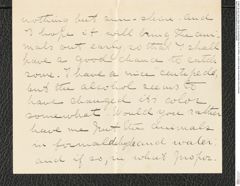 nothing but sun-shine and
I hope it will bring the ani-
mals out early so that I shall
have a good chance to catch
some. I have a nice centipede,
but the alcohol seems to
have changed its color
somewhat. Would you rather
have me put the animals
in formaldehyde and water,
and if so, in what propor-